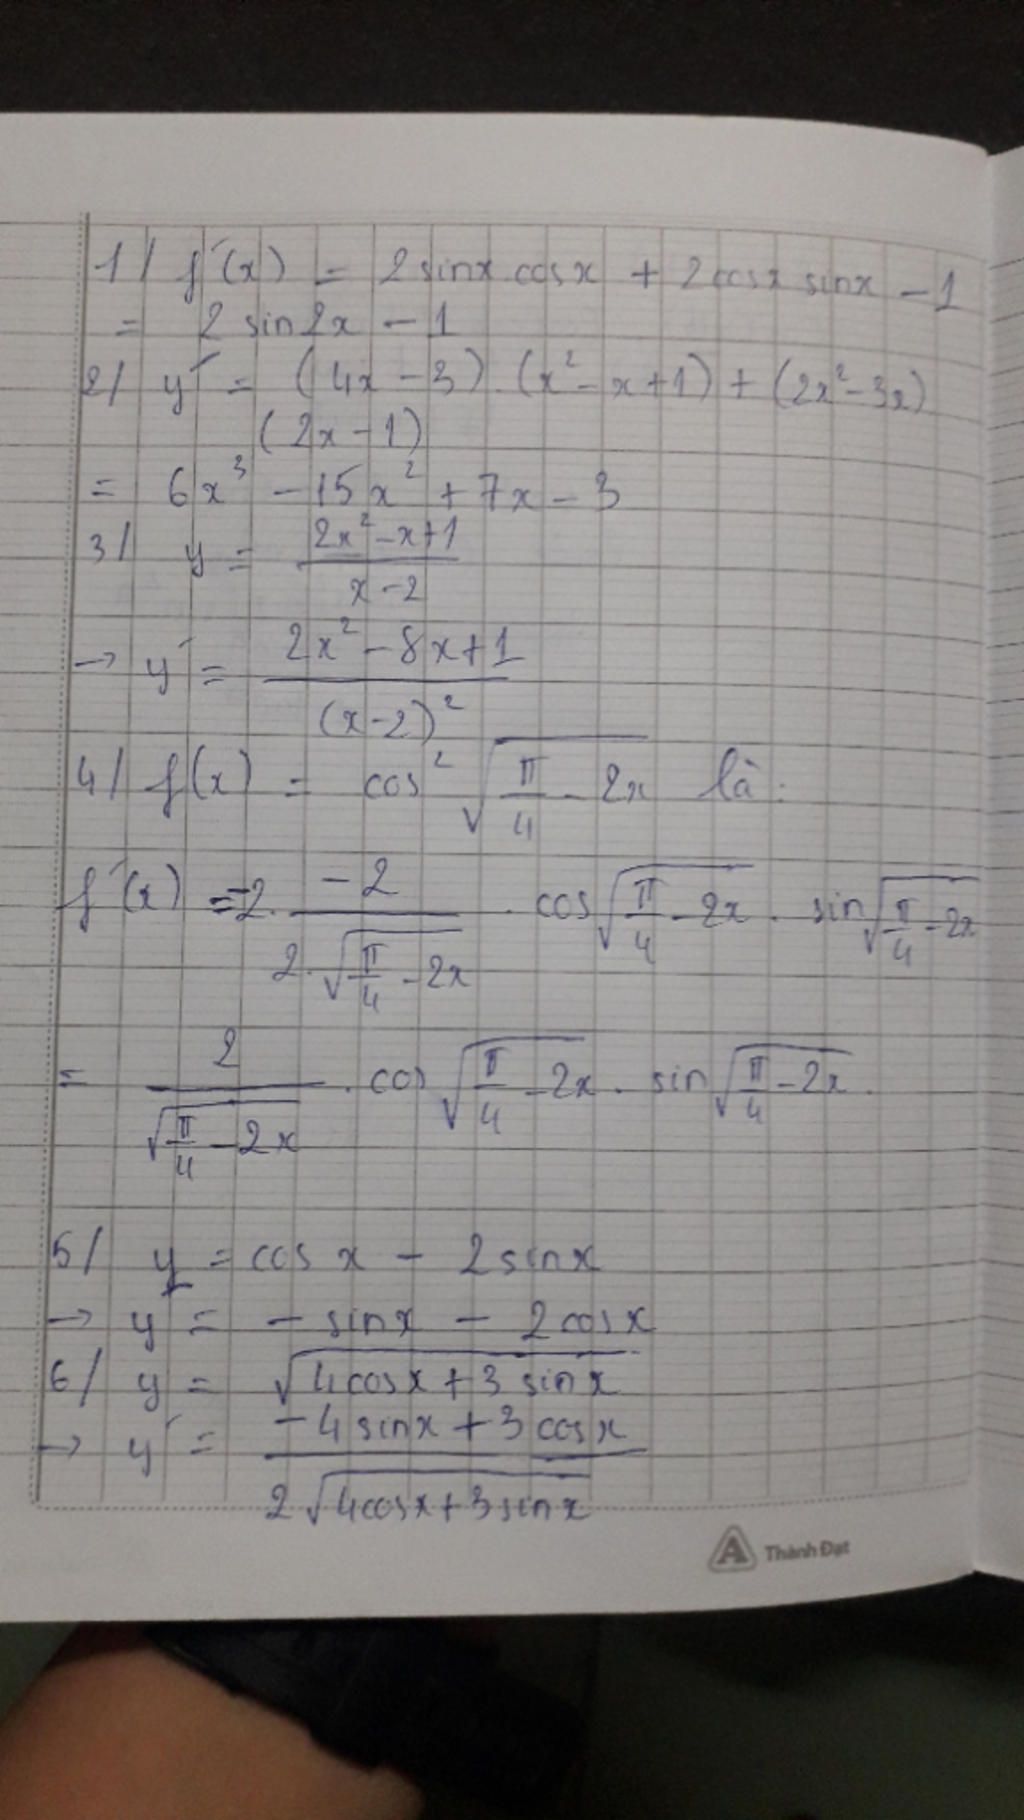 1/ f'(x) = 2 sinx cosx + 2 cosx sinx - 1
= 2 sin2x - 1
2/ y' = (4x - 3) . (x² - x + 1) + (2x² - 3x)
(2x - 1)
= 6x³ - 15x² + 7x - 3
3/ y = \frac{2x² - x + 1}{x - 2}
→ y' = \frac{2x² - 8x + 1}{(x - 2)²}
4/ f(x) = cos² \sqrt{\frac{π}{4} - 2x} là:
f'(x) = -2. \frac{-2}{2. \sqrt{\frac{π}{4} - 2x}} . cos \sqrt{\frac{π}{4} - 2x} . sin \sqrt{\frac{π}{4} - 2x}
= \frac{2}{\sqrt{\frac{π}{4} - 2x}} . cos \sqrt{\frac{π}{4} - 2x} . sin \sqrt{\frac{π}{4} - 2x} .
5/ y = cos x - 2 sinx
→ y' = - sinx - 2 cosx
6/ y = \sqrt{4cosx + 3 sinx}
→ y' = \frac{-4 sinx + 3 cosx}{2 \sqrt{4cosx + 3sinx}}
Thành Đạt